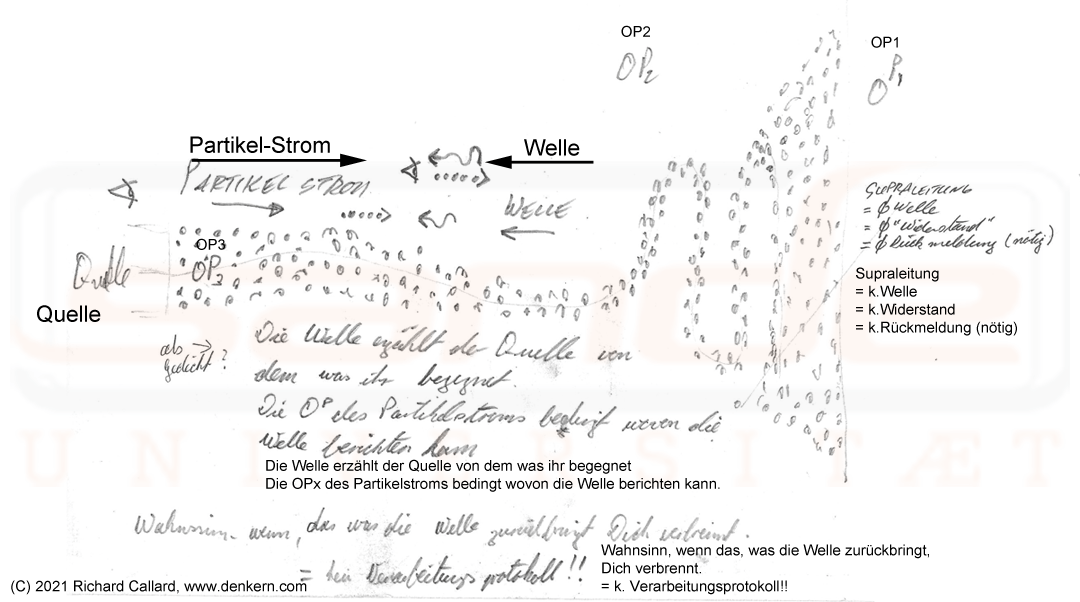 OP2
OP1
OP2
OP1
Partikel-Strom
Welle
PARTIKEL STROM
WELLE
SUPRALEITUNG
= ϕ Welle
= ϕ "Widerstand"
= ϕ Rückmeldung (nötig)
OP3
OP3
Quelle
Quelle
Supraleitung
= k.Welle
= k.Widerstand
= k.Rückmeldung (nötig)
als →
Gedicht ?
Die Welle erzählt der Quelle von
dem was ihr begegnet.
Die OP des Partikelstroms bedingt wovon die
Welle berichten kann
Die Welle erzählt der Quelle von dem was ihr begegnet
Die OPx des Partikelstroms bedingt wovon die Welle berichten kann.
UNIVERSITÆT
Wahnsinn wenn, das was die Welle zurückbringt Dich verbrennt.
= kein Verarbeitungsprotokoll!!
Wahnsinn, wenn das, was die Welle zurückbringt,
Dich verbrennt.
= k. Verarbeitungsprotokoll!!
(C) 2021 Richard Callard, www.denkern.com